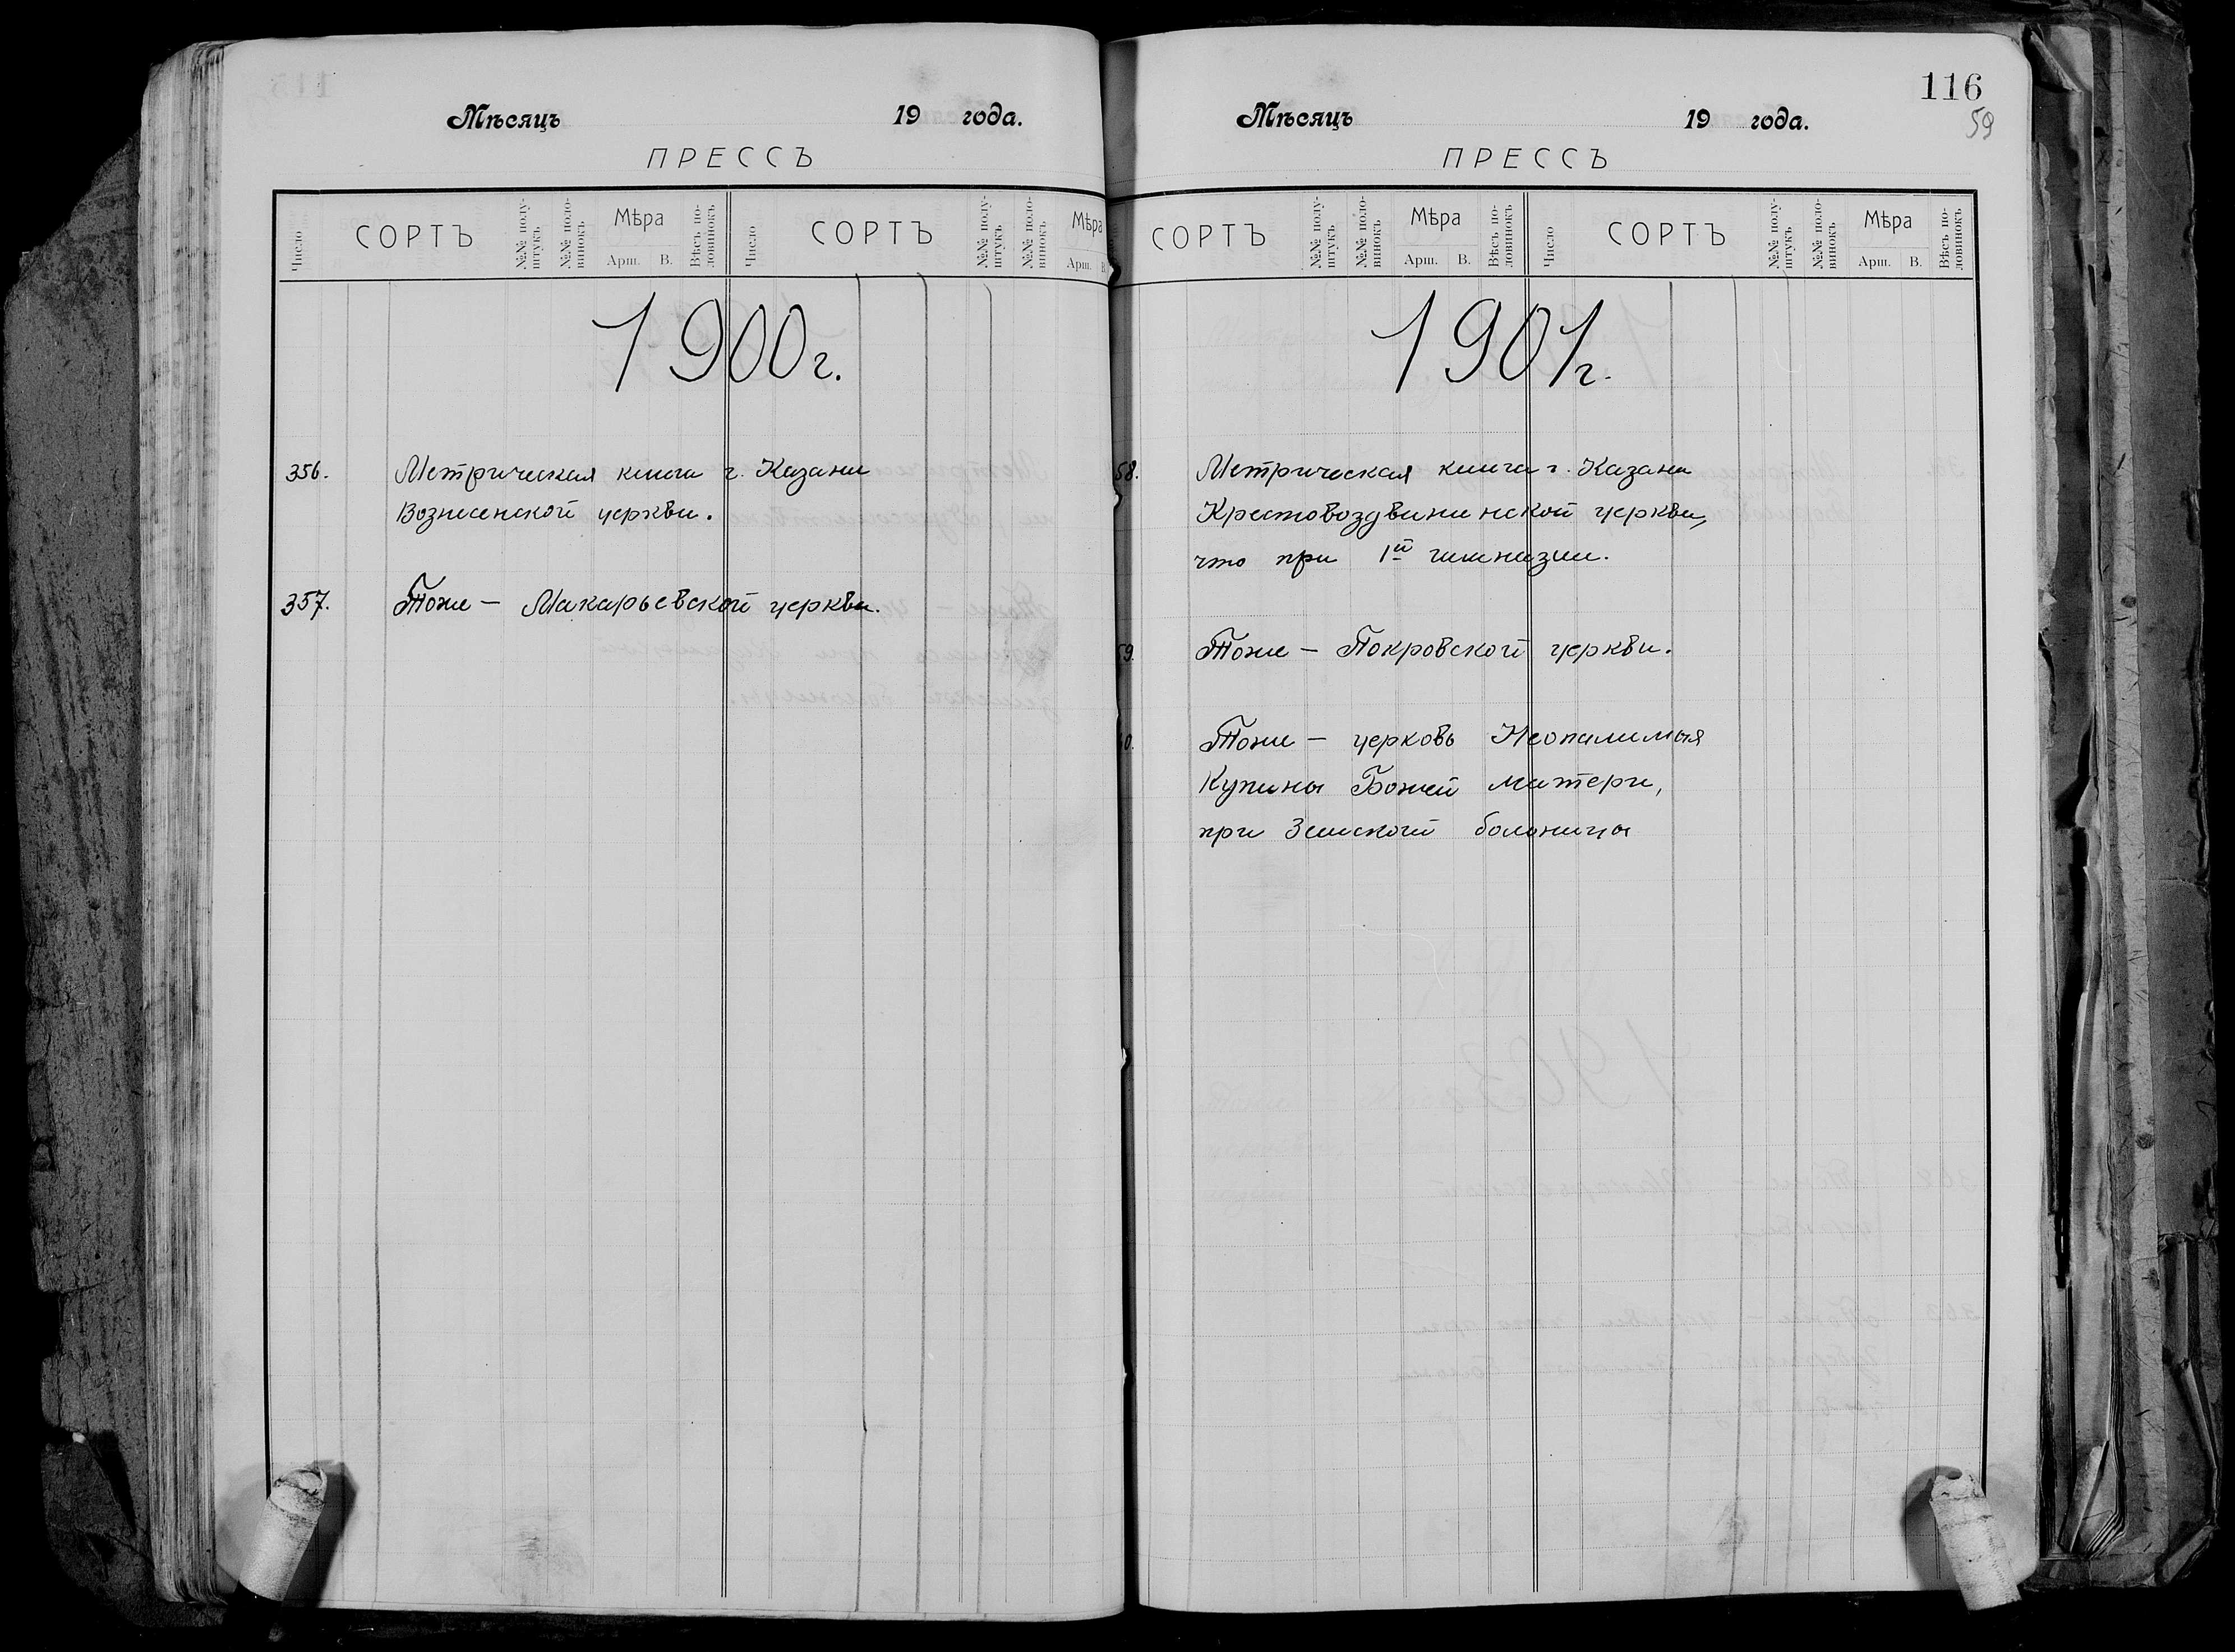 Мѣсяцъ 19 года.
ПРЕССЪ
Число СОРТЪ №№ полуштукъ №№ половинокъ Мѣра Арш. В. Вѣсъ половинокъ Число СОРТЪ №№ полуштукъ №№ половинокъ Мѣра Арш. В.
1900г.
356. Метрическая книга г. Казани
Вознесенской церкви.
357. Тоже — Макарьевской церкви.
116
59
Мѣсяцъ 19 года.
ПРЕССЪ
СОРТЪ №№ полуштукъ №№ половинокъ Мѣра Арш. В. Вѣсъ половинокъ Число СОРТЪ №№ полуштукъ №№ половинокъ Мѣра Арш. В. Вѣсъ половинокъ
1901г.
58. Метрическая книга г. Казани
Крестовоздвиженской церкви,
что при 1й гимназии.
59. Тоже — Покровской церкви.
0. Тоже — церковь Неопалимая
Купины Божей матери,
при Земской больницы